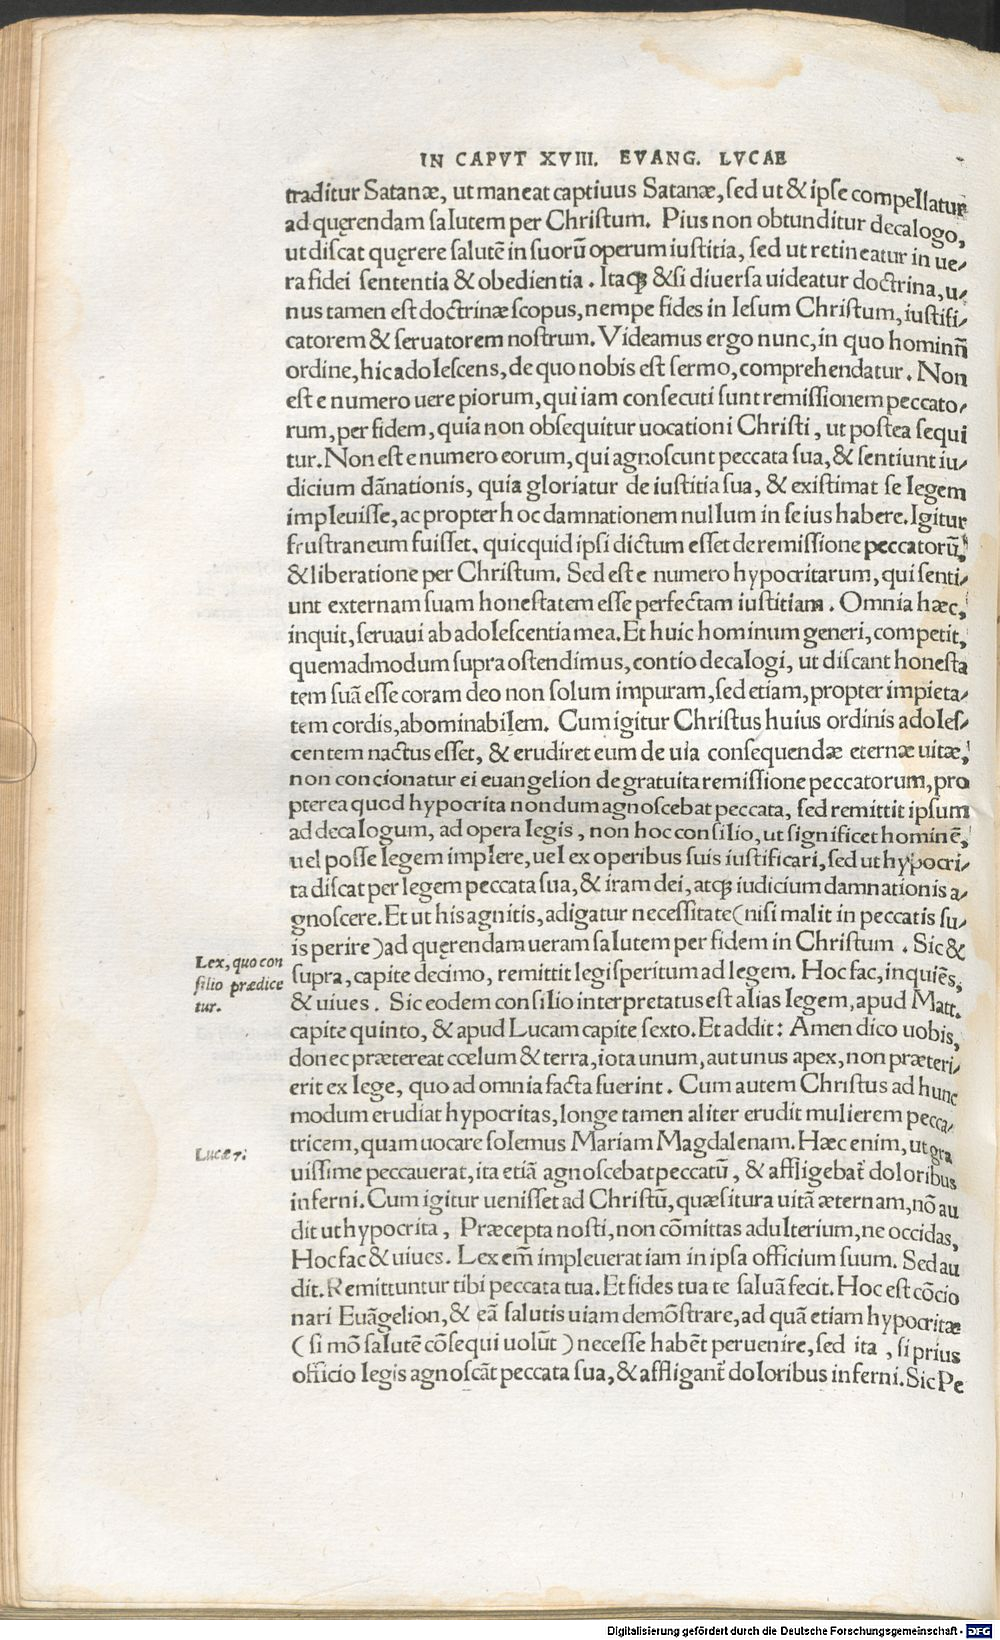 IN CAPVT XVIII. EVANG. LVCAE
traditur Satanæ, ut maneat captiuus Satanæ, sed ut & ipse compellatur
ad quęrendam salutem per Christum. Pius non obtunditur decalogo,
ut discat quęrere salutē in suorū operum iustitia, sed ut retineatur in ue-
ra fidei sententia & obedientia. Itaqȝ & si diuersa uideatur doctrina, u-
nus tamen est doctrinæ scopus, nempe fides in Iesum Christum, iustifi-
catorem & seruatorem nostrum. Videamus ergo nunc, in quo hominū
ordine, hic adolescens, de quo nobis est sermo, comprehendatur. Non
est e numero uere piorum, qui iam consecuti sunt remissionem peccato-
rum, per fidem, quia non obsequitur uocationi Christi, ut postea sequi
tur. Non est e numero eorum, qui agnoscunt peccata sua, & sentiunt iu-
dicium dānationis, quia gloriatur de iustitia sua, & existimat se legem
impleuisse, ac propter hoc damnationem nullum in se ius habere. Igitur
frustraneum fuisset, quicquid ipsi dictum esset de remissione peccatorū,
& liberatione per Christum. Sed est e numero hypocritarum, qui senti-
unt externam suam honestatem esse perfectam iustitiam. Omnia hæc,
inquit, seruaui ab adolescentia mea. Et huic hominum generi, competit,
quemadmodum supra ostendimus, contio decalogi, ut discant honesta
tem suā esse coram deo non solum impuram, sed etiam, propter impieta-
tem cordis, abominabilem. Cum igitur Christus huius ordinis adoles-
centem nactus esset, & erudiret eum de uia consequendæ eternæ uitæ,
non concionatur ei euangelion de gratuita remissione peccatorum, pro
pterea quod hypocrita nondum agnoscebat peccata, sed remittit ipsum
ad decalogum, ad opera legis, non hoc consilio, ut significet hominē,
uel posse legem implere, uel ex operibus suis iustificari, sed ut hypocri-
ta discat per legem peccata sua, & iram dei, atqȝ iudicium damnationis a-
gnoscere. Et ut his agnitis, adigatur necessitate (nisi malit in peccatis su-
is perire) ad quęrendam ueram salutem per fidem in Christum. Sic &
Lex, quo con
silio prædice
tur.
supra, capite decimo, remittit legisperitum ad legem. Hoc fac, inquiēs,
& uiues. Sic eodem consilio interpretatus est alias legem, apud Matt.
capite quinto, & apud Lucam capite sexto. Et addit: Amen dico uobis,
donec prætereat cœlum & terra, iota unum, aut unus apex, non præteri-
erit ex lege, quo ad omnia facta fuerint. Cum autem Christus ad hunc
modum erudiat hypocritas, longe tamen aliter erudit mulierem pecca-
tricem, quam uocare solemus Mariam Magdalenam. Hæc enim, ut gra
Lucæ 7.
uissime peccauerat, ita etiā agnoscebat peccatū, & affligebat᷑ doloribus
inferni. Cum igitur uenisset ad Christū, quæsitura uitā æternam, nō au
dit ut hypocrita, Præcepta nosti, non cōmittas adulterium, ne occidas,
Hoc fac & uiues. Lex em̄ impleuerat iam in ipsa officium suum. Sed au
dit. Remittuntur tibi peccata tua. Et fides tua te saluā fecit. Hoc est cōcio
nari Euāgelion, & eā salutis uiam demōstrare, ad quā etiam hypocritæ
(si mō salutē cōsequi uolūt) necesse habēt peruenire, sed ita, si prius
officio legis agnoscāt peccata sua, & affligant᷑ doloribus inferni. Sic Pe
Digitalisierung gefördert durch die Deutsche Forschungsgemeinschaft - DFG